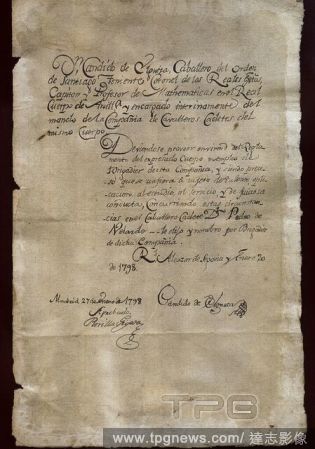 Dn. Candido de Elgueta, Caballero del Orden
de Santiago Theniente Coronel de los Reales Extos.
Capitan y Profesor de Mathematicas en el Real
Cuerpo de Artilla. y encargado interinamente del
mando de la Compañia de Caballeros Cadetes del
mismo Cuerpo
Deviendose proveer en virtud del Regla
mento del expresado Cuerpo
Brigadier de esta Compañia, y siendo preci
so que
cacion al estudio al servicio y de juiciosa
conducta, concurriendo estas circunstan
cias en el Caballero Cadete Dn. Pedro de
Velarde le elijo y nombro por Brigadier
de dicha Compañia.
Rl. Alcazar de Segovia y Enero 20
de 1798.
Madrid 27 de Enero 1798
Candido de Elgueta
Aprobado
TPG
www.tpgnews.com/達志影像